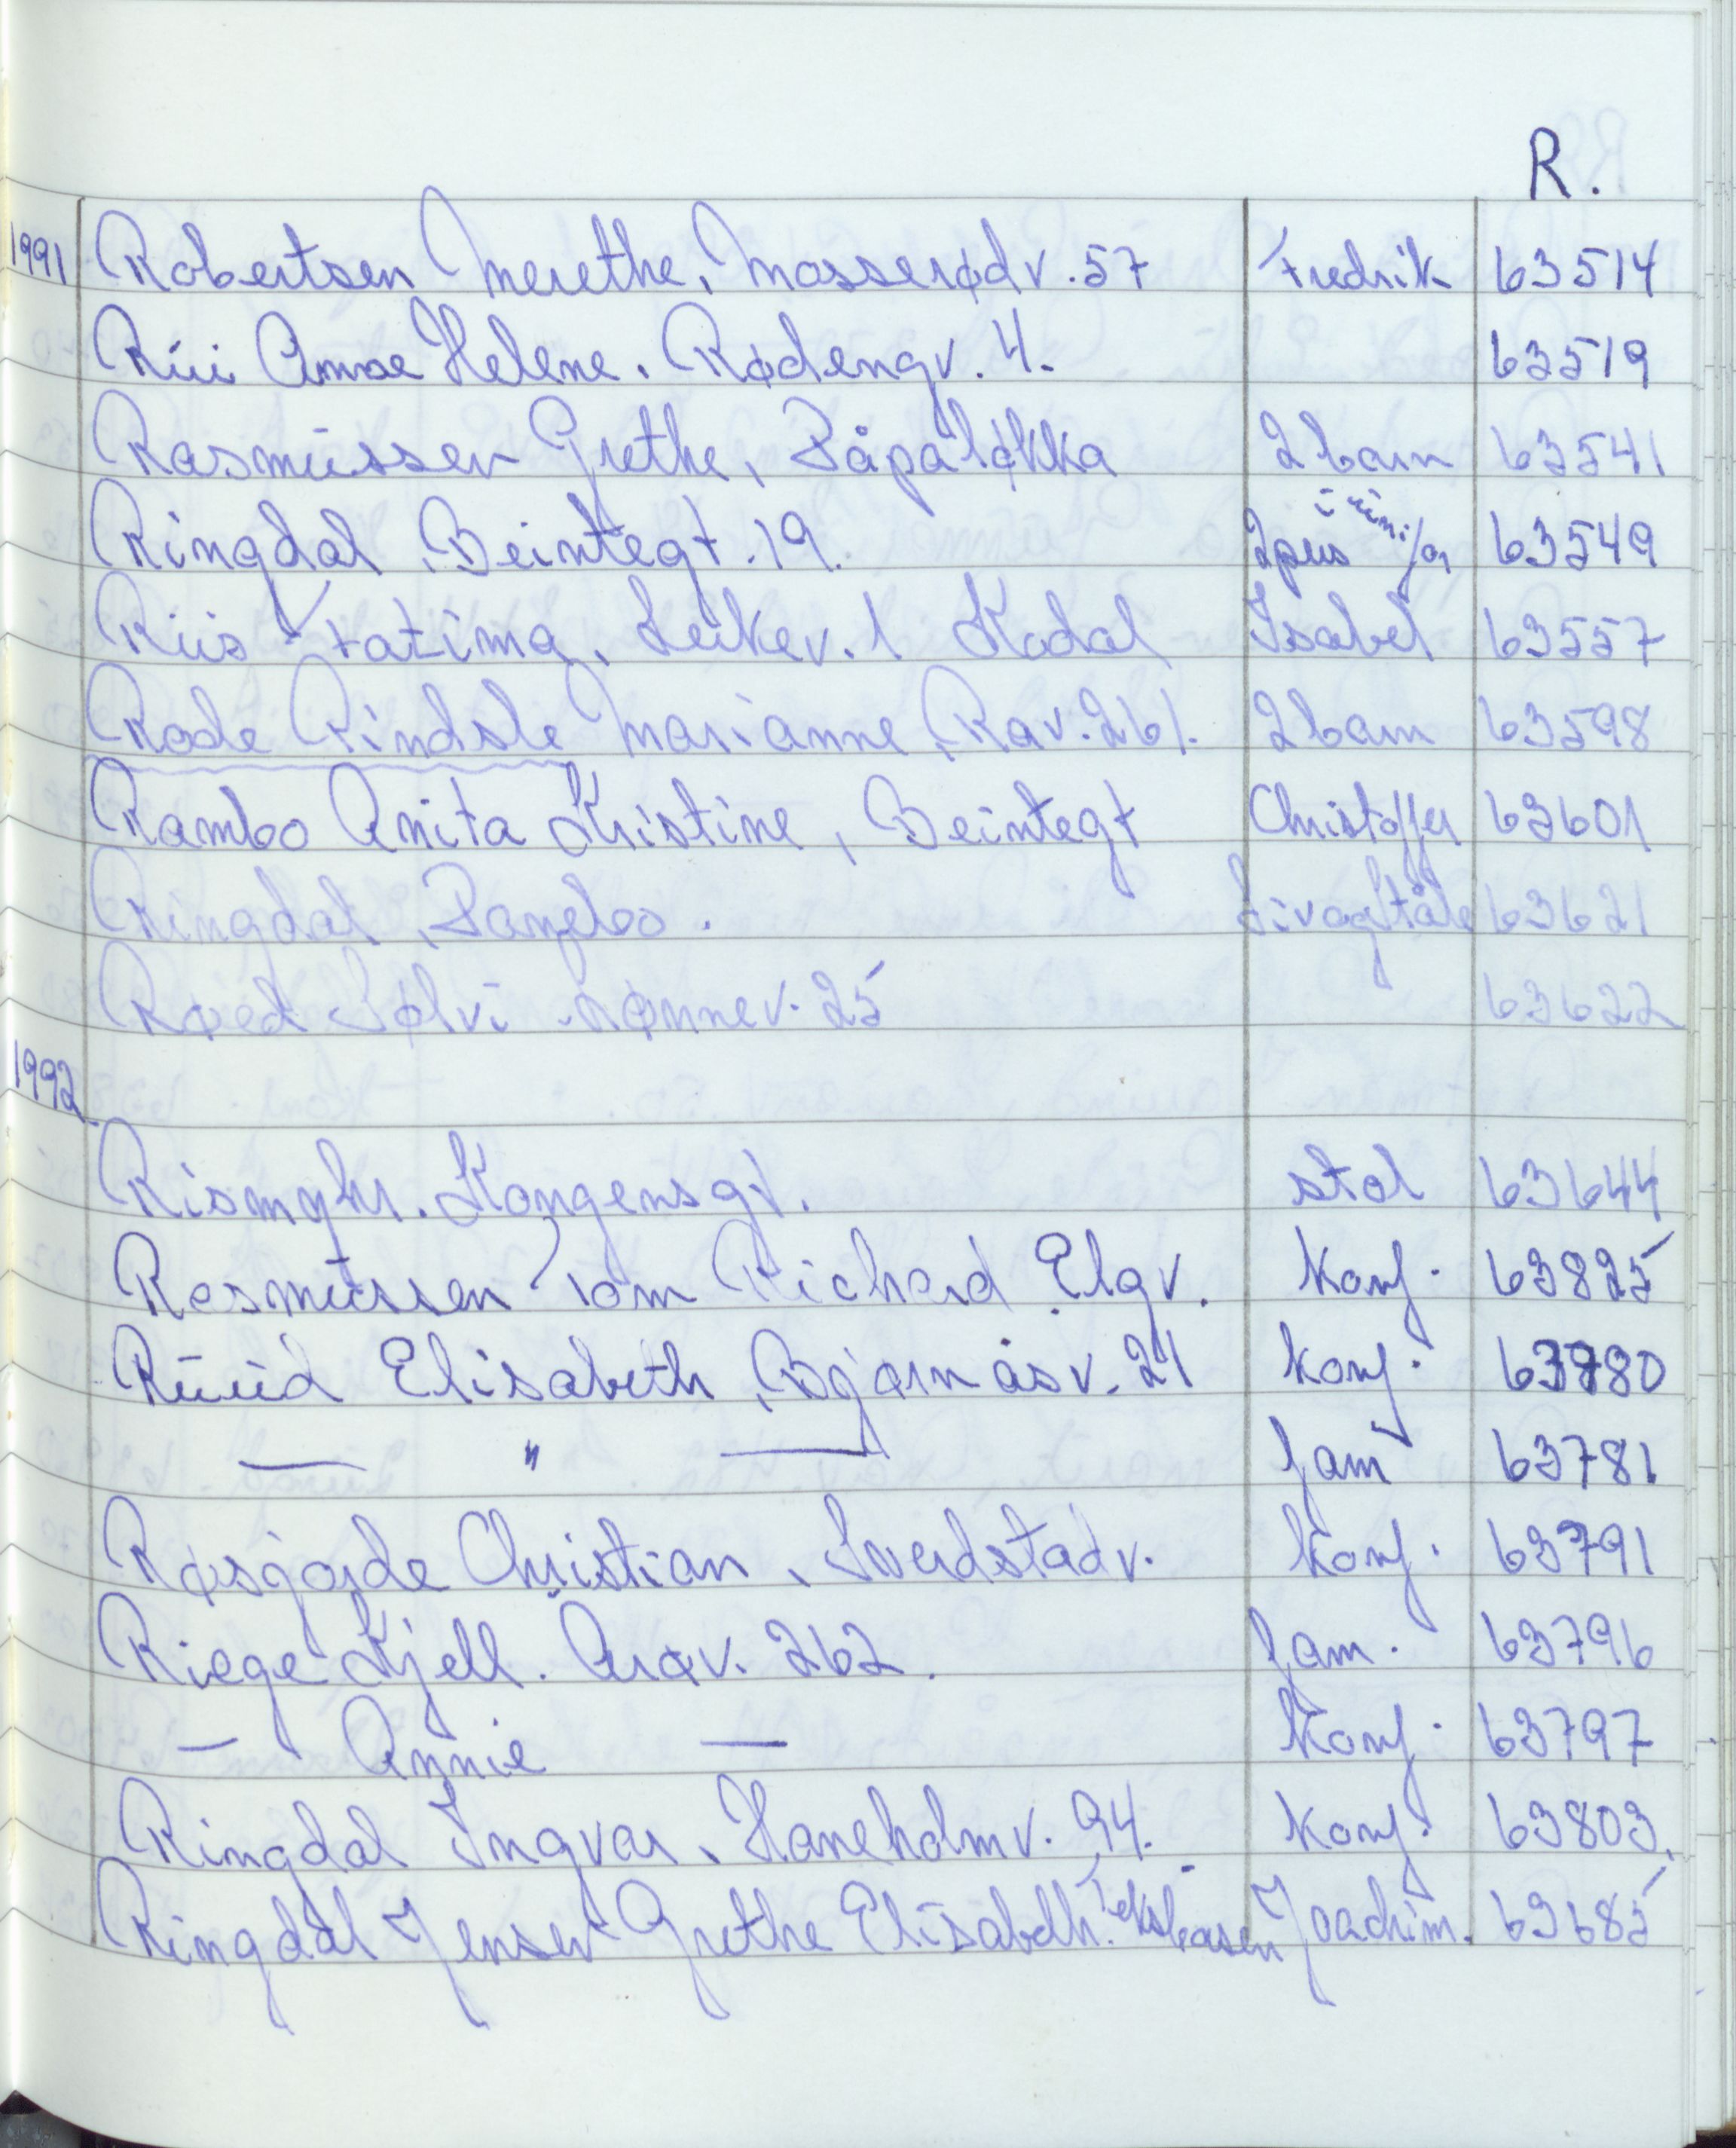 R.
1991 Robertsen Merethe, Mosserødv. 57 Fredrik 63514
Rui Anne Helene. Rødengv. 4. 63519
Rasmussen Grethe, Påpaløkka 2 barn 63541
Ringdal, Beintegt. 19. 2 pers i uniform 63549
Riis Fatima, Leikev. 1 Kodal Isabel 63557
Rode Rindsle Marianne, Rav. 261. 2 barn 63598
Rambo Anita Kristine, Beintegt Christoffer 63601
Ringdal, Panzebo. Siv og Ståle 63621
Røed Sølvi Rønnev. 25 63622
1992
Rismyhr. Kongensgt. stol 63644
Rasmussen Tom Richard Elgv. Konf. 63825
Ruud Elisabeth, Bjørnåsv. 21 Konf. 63780
— " — fam 63781
Røsgjorde Christian, Sverdstadv. Konf. 63791
Riege Kjell. Arøv. 262. fam. 63796
— Annie — Konf. 63797
Ringdal Ingvar, Haneholmv. 94. Konf. 63803.
Ringdal Jensen Grethe Elisabeth. Joachim. 63685